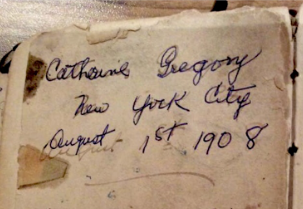 Catherine Gregory
New York City
August 1st 1908